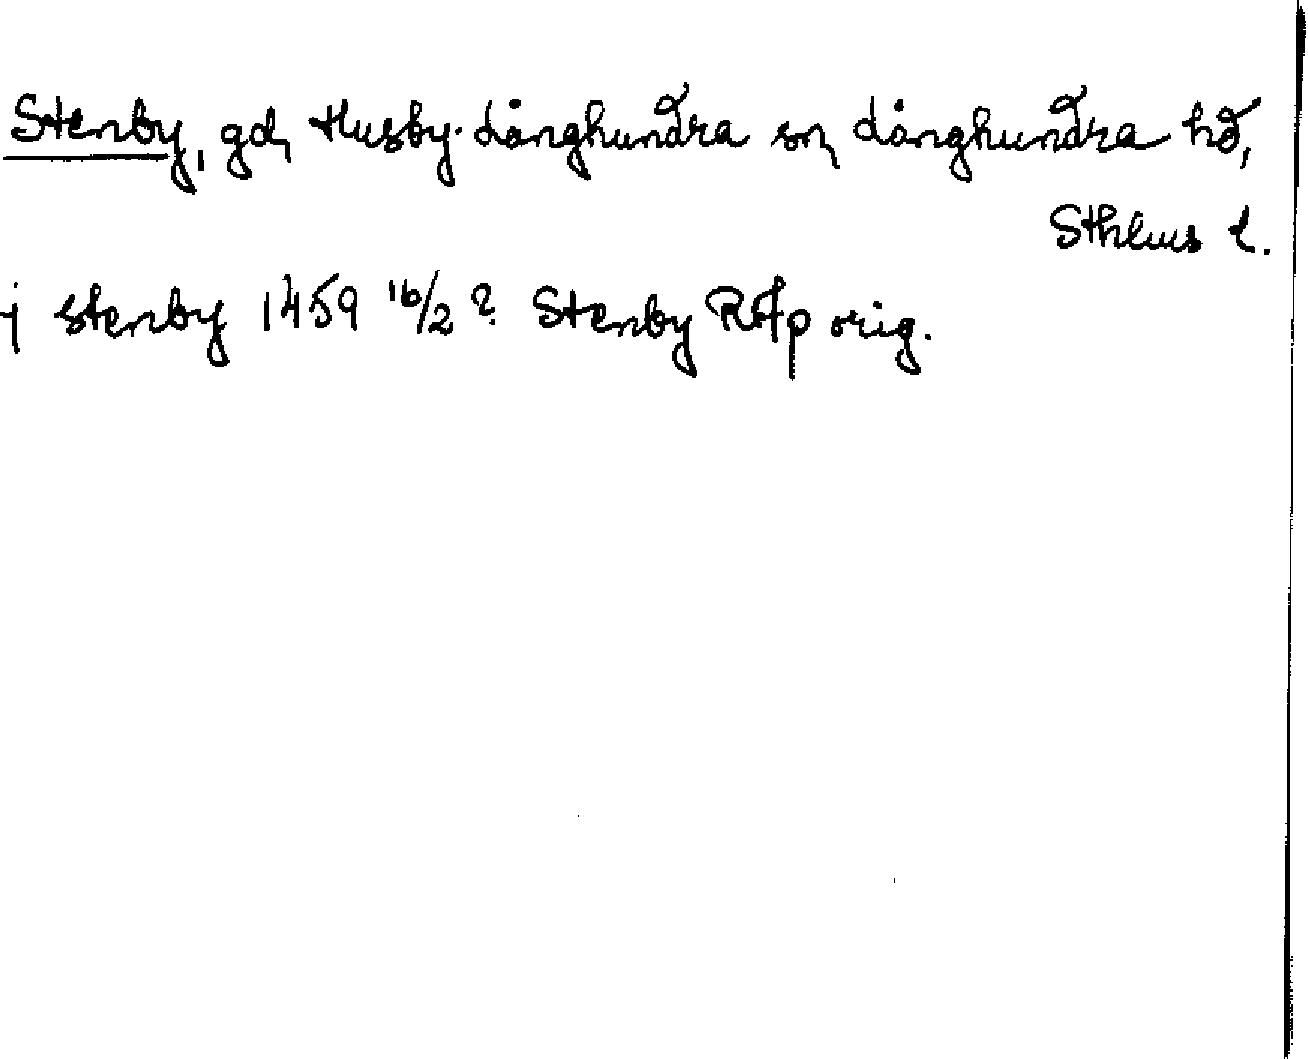 Stenby, gd, Husby-Långhundra sn, Långhundra hd,
Sthlms l.
j stenby 1459 16/2 ? Stenby RAp orig.